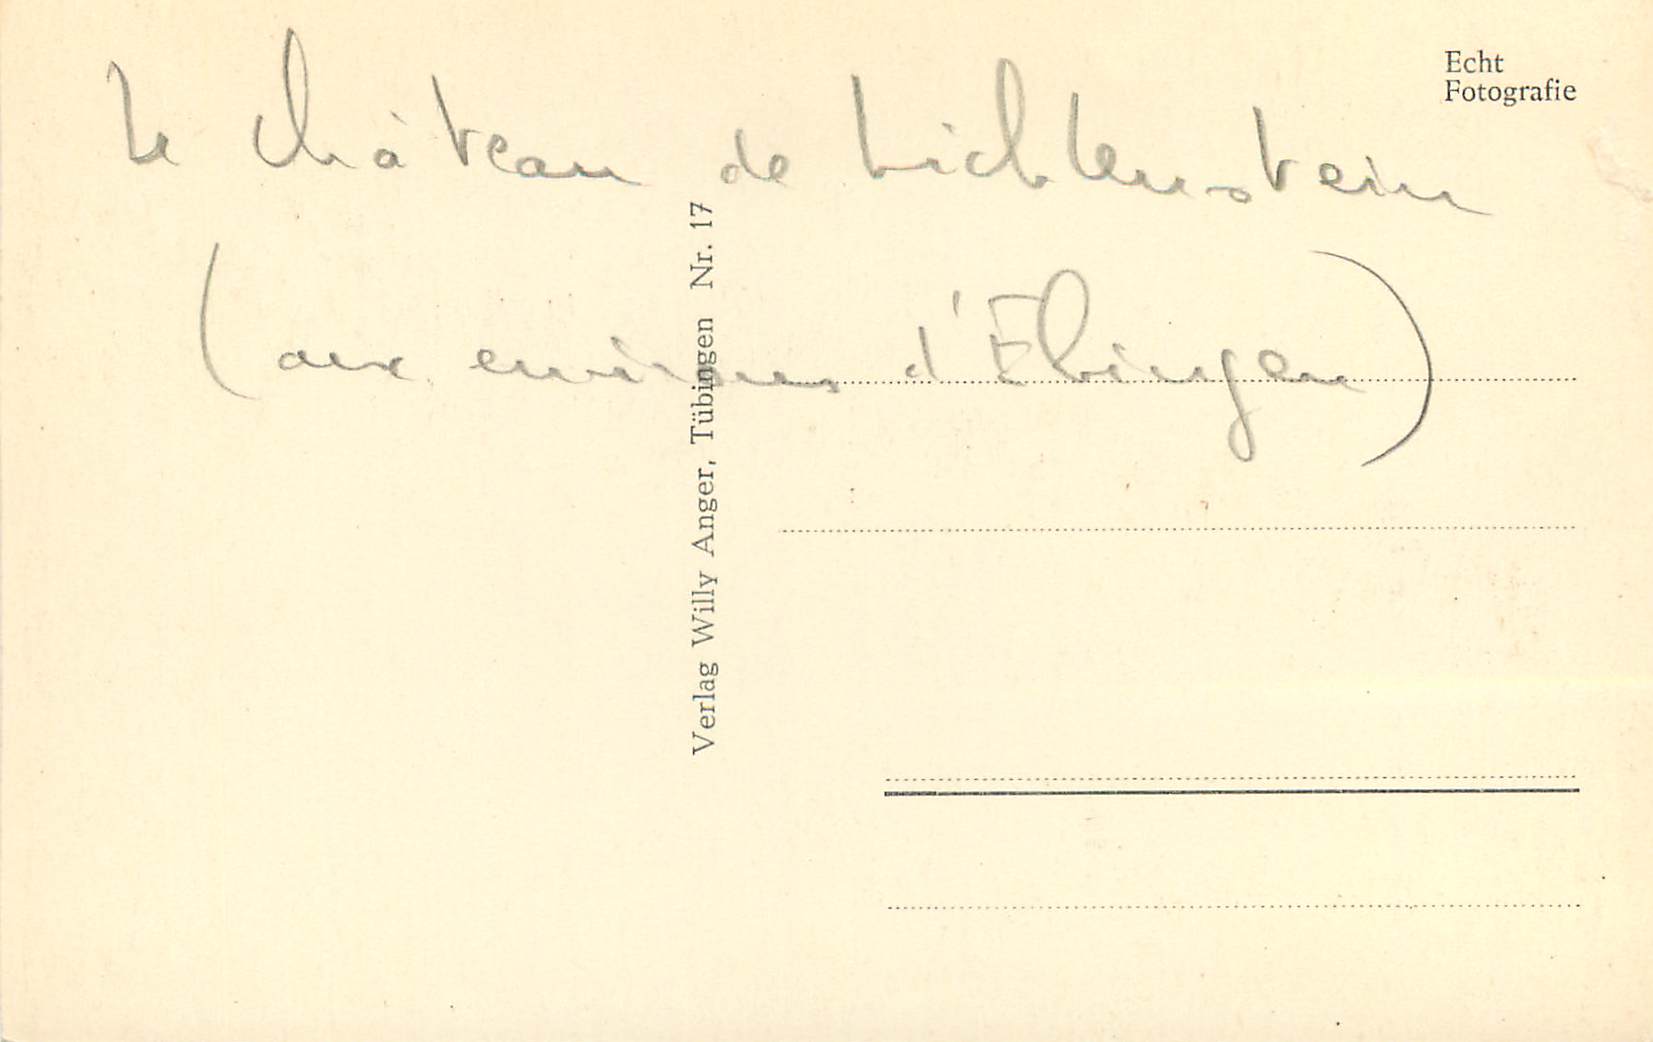 Echt
Fotografie
Le château de Lichtenstein
(aux environs d'Ebingen)
Verlag Willy Anger, Tübingen Nr. 17